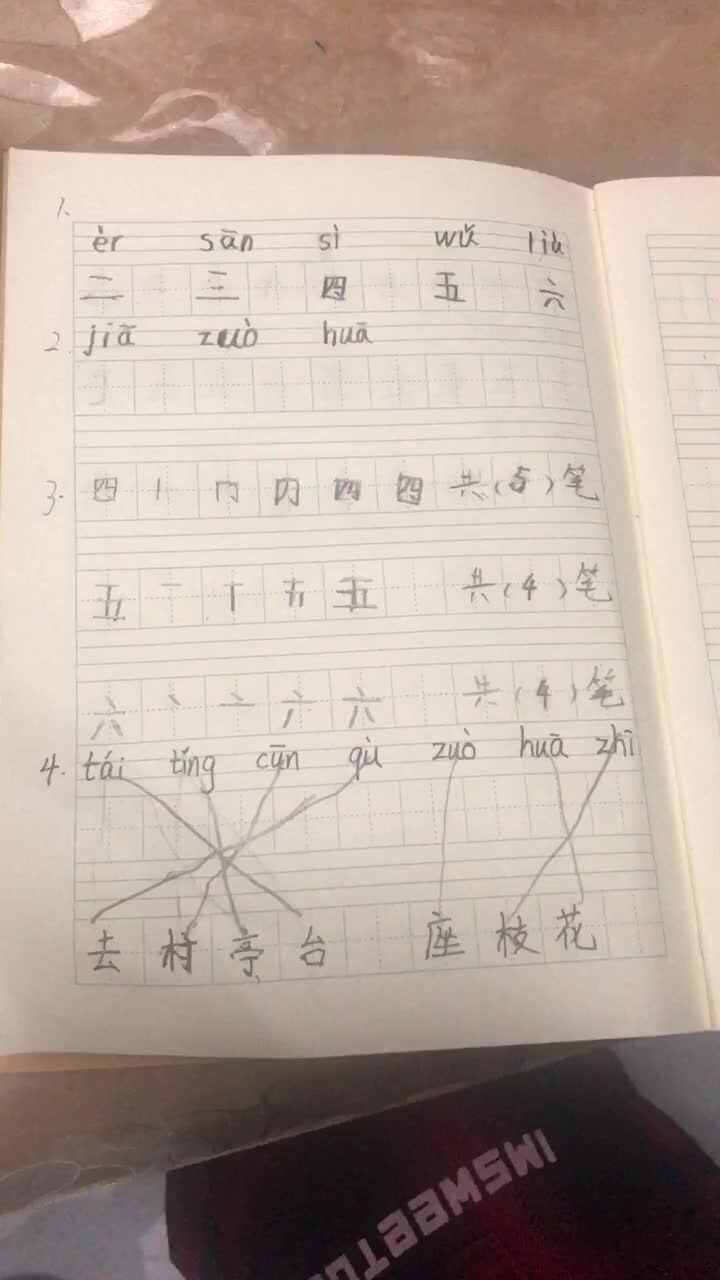 1.
èr sān sì wǔ liù
二 三 四 五 六
2. jiā zuò huā
3. 四 丨 冂 𦉫 四 四 共(5)笔
五 一 丅 五 共(4)笔
六 丶 亠 六 共(4)笔
4. tái tíng cūn qù zuò huā zhī
去 村 亭 台 座 枝 花
IMSWEETBA